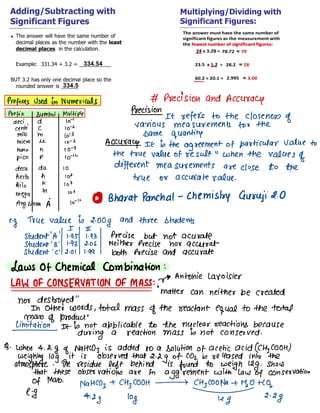 Adding/Subtracting with
Significant Figures
The answer will have the same number of
decimal places as the number with the least
decimal places in the calculation.
Example: 331.34 + 3.2 = 334.54
BUT 3.2 has only one decimal place so the
rounded answer is 334.5
Multiplying/Dividing with
Significant Figures:
The answer must have the same number of
significant figures as the measurement with
the fewest number of significant figures:
24 x 3.28 = 78.72 = 79
23.5 x 1.2 = 28.2 = 28
60.2 ÷ 20.1 = 2.995 = 3.00
Prefixes Used in Numericals
Prefix Symbol Multiple
deci d 10⁻¹
centi C 10⁻²
milli m 10⁻³
micro μ 10⁻⁶
nano n 10⁻⁹
pico P 10⁻¹²
deca da 10
hecto h 10²
kilo K 10³
mega M
Angstrom Å 10⁻¹⁰
# Precision and Accuracy
Precision It refers to the closeness of
various measurements for the
same quantity
Accuracy It is the agreement of particular value to
the true value of result " when the values of
different measurements are close to the
true or accurate value.
Bharat Panchal - Chemistry Guruji 2.0
e.g True value is 2.00g and three students
I II
Student 'A' 1.95 1.93 Precise but not accurate
Student 'B' 1.93 2.05 Neither Precise nor accurate
Student 'C' 2.01 1.99 both Precise and accurate
Laws of Chemical Combination:
LAW OF CONSERVATION OF MASS: Antonie Lavoisier
"matter can neither be created
nor destroyed"
In other words, total mass of the reactant equal to the total
mass of product"
Limitation It is not applicable to the nuclear reactions because
during a reaction mass is not conserved.
Q. When 4.2 g of NaHCO₃ is added to a solution of acetic acid (CH₃COOH)
weighing 10g it is observed that 2.2 g of CO₂ is released into the
atmosphere. The residue left behind is found to weigh 12g. Show
that these observations are in agreement with law of conservation
of Mass.
NaHCO₃ + CH₃COOH → CH₃COONa + H₂O + CO₂
4.2g 10g 12g 2.2g